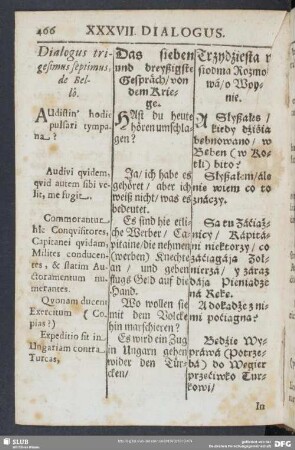 466 XXXVII. DIALOGUS.
Dialogus tri-
gesimus septimus,
de Bel-
lô.
AUdistin' hodie
pulsari tympa-
na?
Audivi qvidem,
qvid autem sibi ve-
lit, me fugit.
Commorantur
hîc Conqvisitores,
Capitanei qvidam,
Milites conducen-
tes, & statim Au-
ctoramentum nu-
merantes.
Qvonam ducent
Exercitum (Co-
pias?)
Expeditio fit in
Ungariam contra
Turcas,
Das sieben
und dreyßigste
Gespräch/ von
dem Krie-
ge.
HAst du heute
hören umschla-
gen?
Ja/ ich habe es
gehöret/ aber ich
weiß nicht/ was es
bedeutet.
Es sind hie etli-
che Werber/ Ca-
pitaine/ die nehmen
(werben) Knechte
an/ und geben
flugs Geld auf die
Hand.
Wo wollen sie
mit dem Volcke
hin marschieren?
Es wird ein Zug
in Ungarn gehen
wider den Tür-
cken/
Trzydziesta y
siodma Rozmo-
wá/ o Woy-
nie.
A Slyßales/
kiedy dźiśia
bebnowano/ w
Beben (w Ko-
tły) bito?
Slyßałem/ ále
nie wiem co to
znáczy.
Są tu Záćiąż-
nicy/ Kápitá-
ni niektorzy/ co
záćiągáją Żoł-
nierzá/ y záraz
dáją Pieniądze
ná Rękę.
A dokądże z ni-
mi poćiągną?
Będzie Wy-
práwá (Potrze-
bá) do Węgier
przećiwko Tur-
kowi/
In
SLUB